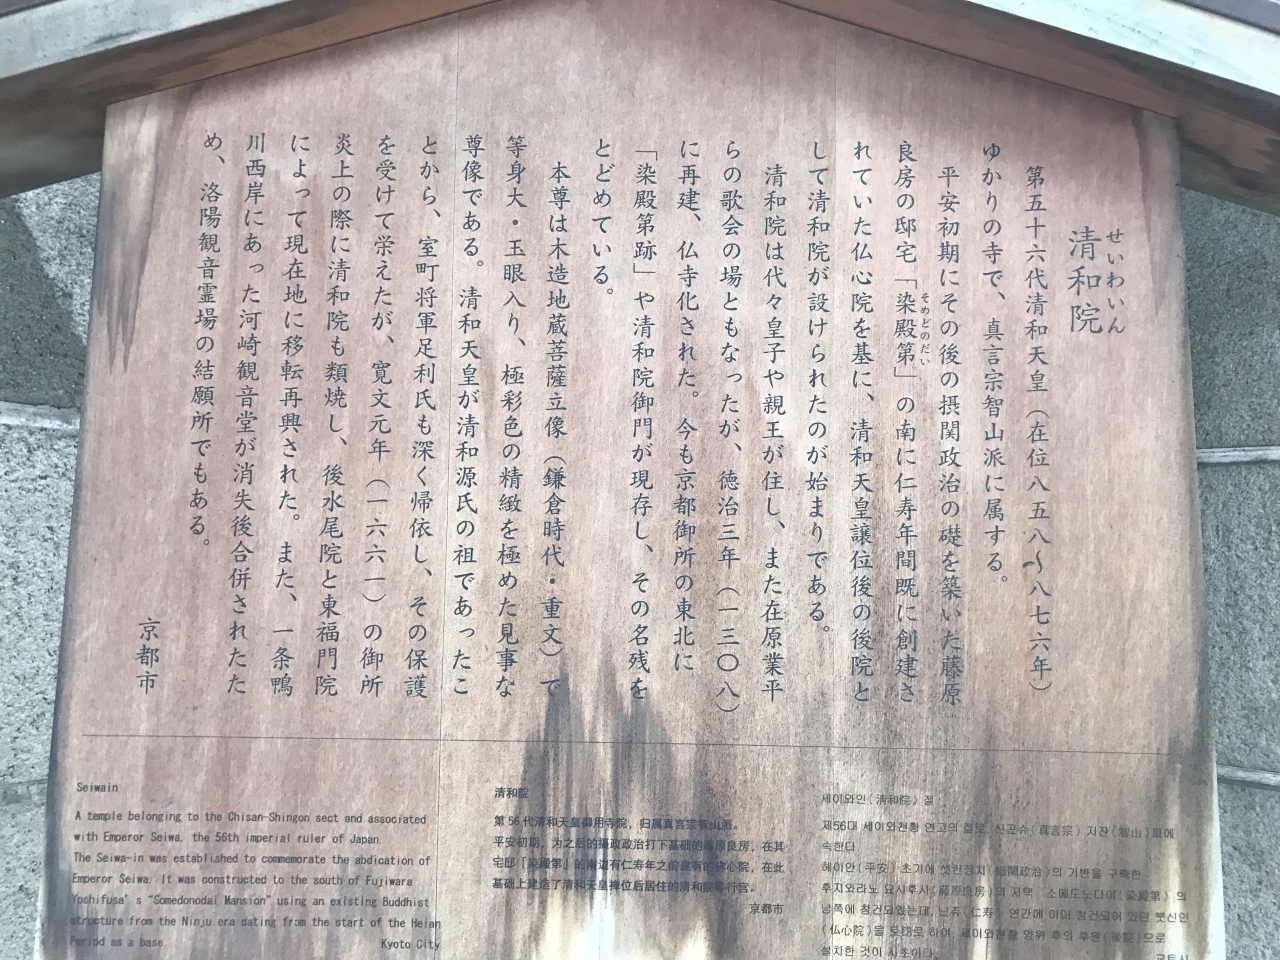 せいわいん
清和院
第五十六代清和天皇（在位八五八〜八七六年）
ゆかりの寺で、真言宗智山派に属する。
平安初期にその後の摂関政治の礎を築いた藤原
良房の邸宅「染殿第」の南に仁寿年間既に創建さ
そめどのだい
れていた仏心院を基に、清和天皇譲位後の後院と
して清和院が設けられたのが始まりである。
清和院は代々皇子や親王が住し、また在原業平
らの歌会の場ともなったが、徳治三年（一三〇八）
に再建、仏寺化された。今も京都御所の東北に
「染殿第跡」や清和院御門が現存し、その名残を
とどめている。
本尊は木造地蔵菩薩立像（鎌倉時代・重文）で
等身大・玉眼入り、極彩色の精緻を極めた見事な
尊像である。清和天皇が清和源氏の祖であったこ
とから、室町将軍足利氏も深く帰依し、その保護
を受けて栄えたが、寛文元年（一六六一）の御所
炎上の際に清和院も類焼し、後水尾院と東福門院
によって現在地に移転再興された。また、一条鴨
川西岸にあった河崎観音堂が消失後合併されたた
め、洛陽観音霊場の結願所でもある。
京都市
Seiwain
A temple belonging to the Chisan-Shingon sect and associated
with Emperor Seiwa, the 56th imperial ruler of Japan.
The Seiwa-in was established to commemorate the abdication of
Emperor Seiwa. It was constructed to the south of Fujiwara
Yoshifusa's "Somedonodai Mansion" using an existing Buddhist
structure from the Ninju era dating from the start of the Heian
Period as a base.
Kyoto City
清和院
第56代清和天皇御用寺院，归属真言宗智山派。
平安初期，为之后的摄政政治打下基础的藤原良房，在其
宅邸「染殿第」的南边有仁寿年之前建有的佛心院，在此
基础上建造了清和天皇禅位后居住的清和院等行宫。
京都市
세이와인（清和院）절
제56대 세이와천황 연고의 절로, 신곤슈（真言宗）지잔（智山）파에
속한다.
헤이안（平安）초기에 섯칸정치（摂関政治）의 기반을 구축한
후지와라노 요시후사（藤原良房）의 저택 「소메도노다이（染殿第）」의
남쪽에 창건되었는데, 닌쥬（仁寿）연간에 이미 창건되어 있던 붓신인
（仏心院）을 토대로 하여, 세이와천황 양위 후의 후원（後院）으로
설치한 것이 시초이다.
교토시